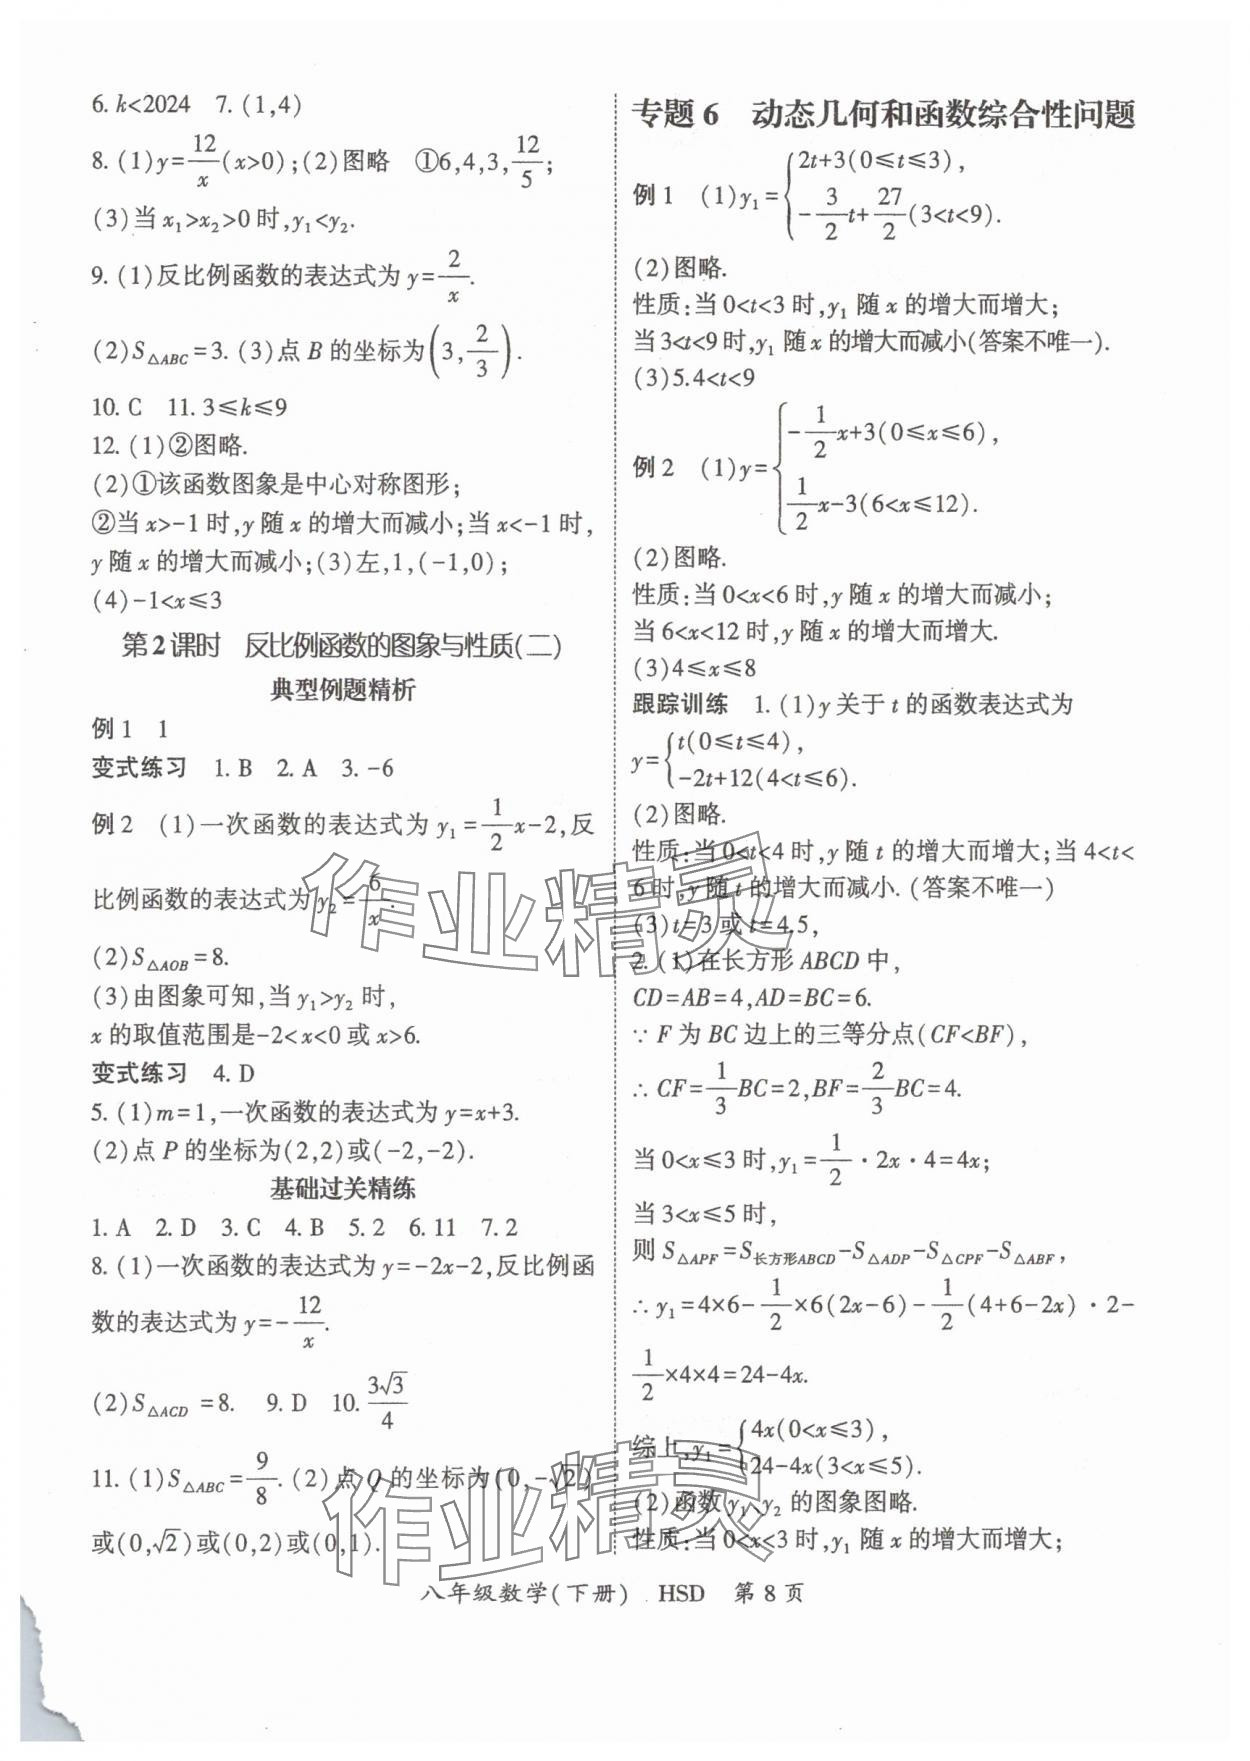 6. k<2024　7. (1,4)
8. (1)y=12/x(x>0);(2)图略　①6,4,3,12/5;
(3)当 x₁>x₂>0 时,y₁<y₂.
9. (1)反比例函数的表达式为 y=2/x.
(2)S△ABC=3. (3)点 B 的坐标为(3,2/3).
10. C　11. 3≤k≤9
12. (1)②图略.
(2)①该函数图象是中心对称图形;
②当 x>-1 时,y 随 x 的增大而减小;当 x<-1 时,
y 随 x 的增大而减小;(3)左,1,(-1,0);
(4)-1<x≤3
第 2 课时　反比例函数的图象与性质(二)
典型例题精析
例 1　1
变式练习　1. B　2. A　3. -6
例 2　(1)一次函数的表达式为 y₁=1/2x-2,反
比例函数的表达式为 y₂=6/x.
(2)S△AOB=8.
(3)由图象可知,当 y₁>y₂ 时,
x 的取值范围是-2<x<0 或 x>6.
变式练习　4. D
5. (1)m=1,一次函数的表达式为 y=x+3.
(2)点 P 的坐标为(2,2)或(-2,-2).
基础过关精练
1. A　2. D　3. C　4. B　5. 2　6. 11　7. 2
8. (1)一次函数的表达式为 y=-2x-2,反比例函
数的表达式为 y=-12/x.
(2)S△ACD=8.　9. D　10. 3√3/4
11. (1)S△ABC=9/8. (2)点 Q 的坐标为(0,-√2)
或(0,√2)或(0,2)或(0,1).
专题 6　动态几何和函数综合性问题
例 1　(1)y₁={2t+3(0≤t≤3),
-3/2t+27/2(3<t<9).
(2)图略.
性质:当 0<t<3 时,y₁ 随 x 的增大而增大;
当 3<t<9 时,y₁ 随 x 的增大而减小(答案不唯一).
(3)5.4<t<9
例 2　(1)y={-1/2x+3(0≤x≤6),
1/2x-3(6<x≤12).
(2)图略.
性质:当 0<x<6 时,y 随 x 的增大而减小;
当 6<x<12 时,y 随 x 的增大而增大.
(3)4≤x≤8
跟踪训练　1. (1)y 关于 t 的函数表达式为
y={t(0≤t≤4),
-2t+12(4<t≤6).
(2)图略.
性质:当 0<t<4 时,y 随 t 的增大而增大;当 4<t<
6 时,y 随 t 的增大而减小. (答案不唯一)
(3)t=3 或 t=4.5,
2. (1)在长方形 ABCD 中,
CD=AB=4,AD=BC=6.
∵ F 为 BC 边上的三等分点(CF<BF),
∴ CF=1/3BC=2,BF=2/3BC=4.
当 0<x≤3 时,y₁=1/2·2x·4=4x;
当 3<x≤5 时,
则 S△APF=S长方形ABCD-S△ADP-S△CPF-S△ABF,
∴ y₁=4×6-1/2×6(2x-6)-1/2(4+6-2x)·2-
1/2×4×4=24-4x.
综上,y₁={4x(0<x≤3),
24-4x(3<x≤5).
(2)函数 y₁、y₂ 的图象图略.
性质:当 0<x<3 时,y₁ 随 x 的增大而增大;
作业精灵
作业精灵
八年级数学(下册)　HSD　第 8 页